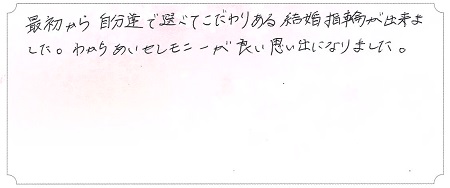 最初から自分達で選べてこだわりある結婚指輪が出来ま
した。わかちあいセレモニーが良い思い出になりました。